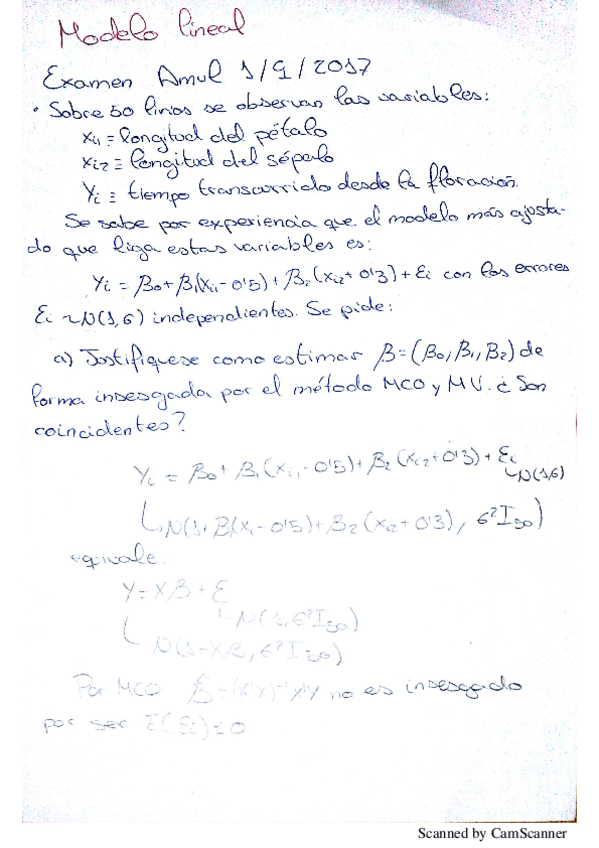 Modelo lineal
Examen Amul 1/9/2017
• Sobre 50 linios se observan las variables:
xi1 = longitud del pétalo
xi2 ≡ longitud del sépalo
Yi ≡ tiempo transcurrido desde la floración.
Se sabe por experiencia que el modelo más ajusta-
do que liga estas variables es:
Yi = β0+β1(xi1-0'5)+β2(xi2+0'3)+εi con los errores
εi ~N(1,6) independientes. Se pide:
a) Justifíquese como estimar β=(β0,β1,β2) de
forma insesgada por el método MCO y MV. ¿Son
coincidentes?
Yi = β0+ β1(xi1-0'5)+β2(xi2+0'3)+εi
↳N(1,6)
↳N(1+β1(x1-0'5)+β2(xi2+0'3), 6²I50)
equivale.
Y=Xβ+ε
↳N(1,6²I50)
↳N(1+Xβ,6²I50)
Por MCO β̂=(X'X)⁻¹X'Y no es insesgado
por ser E(εi)≠0
Scanned by CamScanner